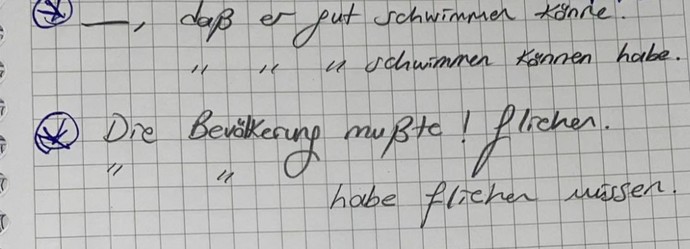 —, daß er gut schwimmen könne.
" " " schwimmen können habe.
Die Bevölkerung mußte! fliehen.
" "
habe fliehen müssen.